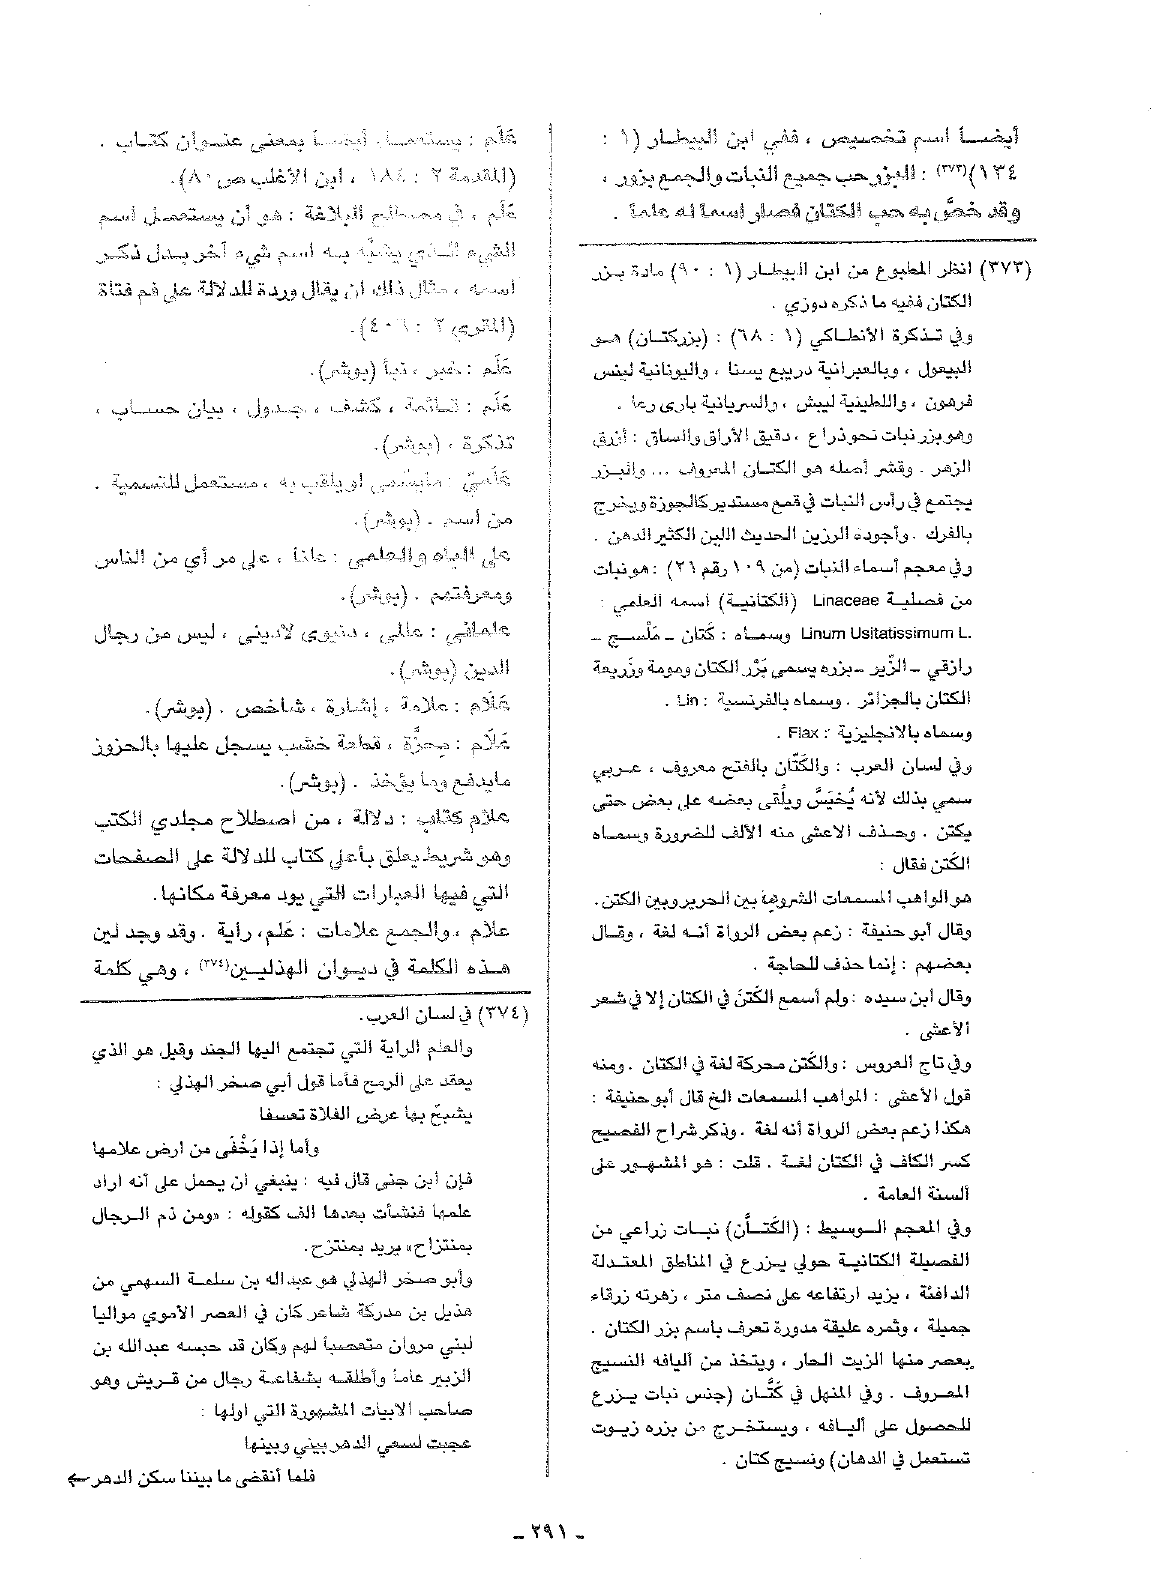 أيضاً اسم تخصيص ، ففي ابن البيطار (١ :
١٣٤)(٣٧٣) : البزر حب جميع النبات والجمع بزور ،
وقد خصَّ به حب الكتان فصار اسماً له علماً .
(٣٧٣) انظر المطبوع من ابن البيطار (١ : ٩٠) مادة بزر
الكتان ففيه ما ذكره دوزي .
وفي تذكرة الأنطاكي (١ : ٦٨) : (بزركتان) هو
البيعول ، وبالعبرانية دربيع يسنا ، واليونانية لينس
فرهون ، واللطينية ليبش ، والسريانية باري رعا .
وهو بزر نبات نحو ذراع ، دقيق الأراق والساق : أزرق
الزهر . وقشر أصله هو الكتان المعروف ... والبزر
يجتمع في رأس النبات في قمع مستدير كالجوزة ويخرج
بالفرك . وأجوده الرزين الحديث اللين الكثير الدهن .
وفي معجم أسماء النبات (من ١٠٩ رقم ٢٦) : هو نبات
من فصلية Linaceae (الكتانية) أسمه العلمي :
Linum Usitatissimum L. وسماه : كَتان - مَلْسج -
رازقي - الزِّير - بزره يسمى بَزْر الكتان ومومة وزَريعة
الكتان بالجزائر . وسماه بالفرنسية : Lin .
وسماه بالانجليزية : Flax .
وفي لسان العرب : والكَتّان بالفتح معروف ، عربي
سمي بذلك لأنه يُخيَّسُ ويلُقى بعضه على بعض حتى
يكتن . وحذف الاعشى منه الألف للضرورة وسماه
الكَتن فقال :
هو الواهب المسمعات الشروبَ بين الحرير وبين الكتن .
وقال أبو حنيفة : زعم بعض الرواة أنه لغة ، وقال
بعضهم : إنما حذف للحاجة .
وقال أبن سيده : ولم أسمع الكَتَنَ في الكتان إلا في شعر
الأعشى .
وفي تاج العروس : والكَتن محركة لغة في الكتان . ومنه
قول الأعشى : المواهب المسمعات الخ قال أبو حنيفة :
هكذا زعم بعض الرواة أنه لغة . وذكر شراح الفصيح
كسر الكاف في الكتان لغة . قلت : هو المشهور على
ألسنة العامة .
وفي المعجم الوسيط : (الكَتَّان) نبات زراعي من
الفصيلة الكتانية حولي يزرع في المناطق المعتدلة
الدافئة ، يزيد ارتفاعه على نصف متر ، زهرته زرقاء
جميلة ، وثمره عليقة مدورة تعرف باسم بزر الكتان .
يعصر منها الزيت الحار ، ويتخذ من أليافه النسيج
المعروف . وفي المنهل في كَتَّان (جنس نبات يزرع
للحصول على أليافه ، ويستخرج من بزره زيوت
تستعمل في الدهان) ونسيج كتان .
عَلَم : يستعمل أيضاً بمعنى عنوان كتاب .
(المقدمة ٢ : ١٨٤ ، ابن الأغلب ص ٨٠).
عَلَم ، في مصطلح البلاغة : هو أن يستعمل اسم
الشيء الذي يشبَّه به اسم شيء آخر بدل ذكر
اسمه ، مثال ذلك ان يقال وردة للدلالة على فم فتاة
(المقري ٢ : ٤٠٦).
عَلَم : خبر ، نبأ (بوشر).
عَلَم : قائمة ، كشف ، جدول ، بيان حساب ،
تذكرة ، (بوشر).
عَلَميّ : مايسُمى او يلقب به ، مستعمل للتسمية .
من أسم . (بوشر).
على الياه والعلمي : علنا ، على مر أي من الناس
ومعرفتهم . (بوشر).
علماني : عالمي ، دنيوي لاديني ، ليس من رجال
الدين (بوشر).
عَلَام : علامة ، إشارة ، شاخص . (بوشر).
عَلَّام : مِحزَّة ، قطعة خشب يسجل عليها بالحزوز
مايدفع وما يؤخذ . (بوشر).
علام كتاب : دلالة ، من اصطلاح مجلدي الكتب
وهو شريط يعلق بأعلى كتاب للدلالة على الصفحات
التي فيها العبارات التي يود معرفة مكانها.
علام ، والجمع علامات : عَلَم، راية . وقد وجد لين
هذه الكلمة في ديوان الهذليين(٣٧٤) ، وهي كلمة
(٣٧٤) في لسان العرب.
والعلم الراية التي تجتمع اليها الجند وقيل هو الذي
يعقد على الرمح فأما قول أبي صخر الهذلي :
يشبحّ بها عرض الفلاة تعسفا
وأما إذا يَخْفَى من ارض علامها
فإن أبن جنى قال فيه : ينبغي ان يحمل على أنه اراد
علمها فنشأت بعدها الف كقوله : «ومن ذم الرجال
بمنتزاح» يريد بمنتزح.
وأبو صخر الهذلي هو عبدالله بن سلمة السهمي من
هذيل بن مدركة شاعر كان في العصر الأموي مواليا
لبني مروان متعصباً لهم وكان قد حبسه عبدالله بن
الزبير عاماً وأطلقه بشفاعة رجال من قريش وهو
صاحب الابيات المشهورة التي اولها :
عجبت لسعي الدهر بيني وبينها
فلما أنقضى ما بيننا سكن الدهر ←
- ٢٩١ -